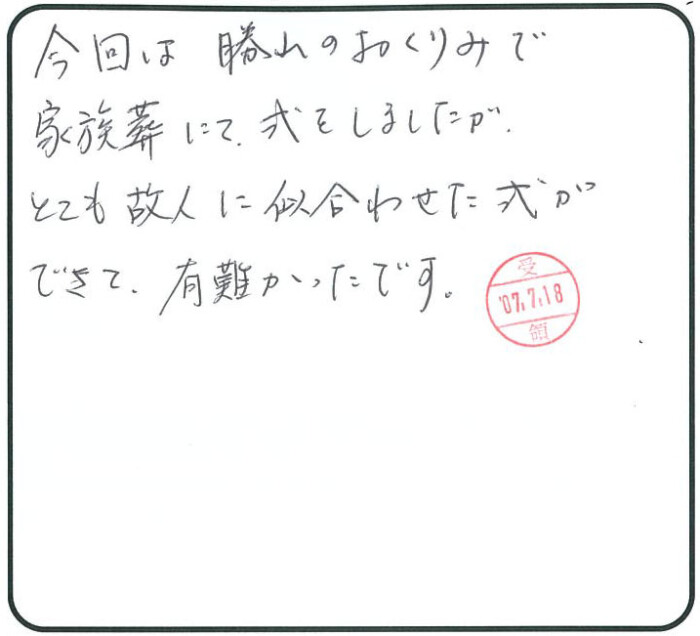 今回は 勝れのおくりみで
家族葬にて、式をしましたが、
とても故人に似合わせた式が
できて、有難かったです。
受
'07.7.18
領